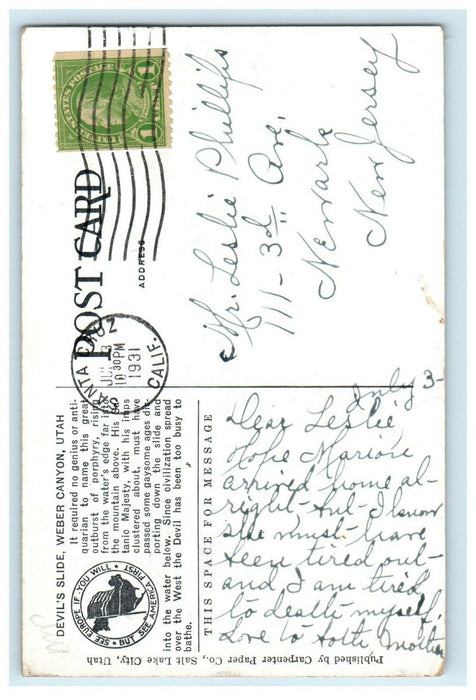 POST CARD
ADDRESS
SANTA CRUZ
JUL 3
10 30PM
1931
CALIF.
UNITED STATES POSTAGE
1 CENT 1
Mr. Leslie Phillips
111 - 3d Ave.
Newark
New Jersey
DEVIL'S SLIDE, WEBER CANYON, UTAH
It required no genius or anti-
quarian to name this great
outburst of porphyry, rising
from the water's edge far into
the mountain above. His Sa-
tanic Majesty, with his imps
clustered about, must have
passed some gaysome ages dis-
porting down the slide and
into the water below. Since civilization spread
over the West the Devil has been too busy to
bathe.
SEE EUROPE IF YOU WILL • BUT SEE AMERICA FIRST •
THIS SPACE FOR MESSAGE
July 3-
Dear Leslie
Hope Marion
arrived home al-
right - but I know
she must have
been tired out -
and I am tired
to death myself,
Love to both Mother
Published by Carpenter Paper Co., Salt Lake City, Utah